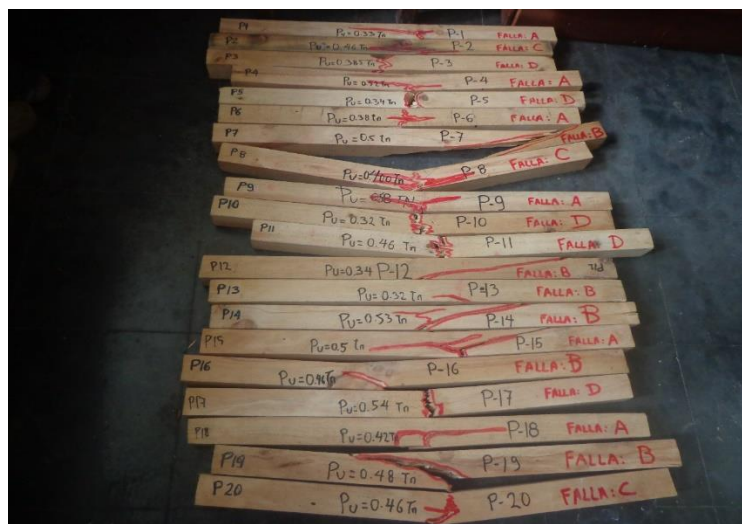 P1 Pu=0.33 Tn P-1 FALLA: A
P2 Pu=0.46 Tn P-2 FALLA: C
P3 Pu=0.385 Tn P-3 FALLA: D
P4 Pu=0.52 Tn P-4 FALLA: A
P5 Pu=0.34 Tn P-5 FALLA: D
P6 Pu=0.38 Tn P-6 FALLA: A
P7 Pu=0.5 Tn P-7 FALLA: B
P8 Tn P-8 FALLA: C
P9 Pu= P-9 FALLA: A
P10 Pu=0.32 Tn P-10 FALLA: D
P11 Pu=0.46 Tn P-11 FALLA: D
P12 Pu=0.34 P-12 FALLA: B P12
P13 Pu=0.32 Tn P-13 FALLA: B
P14 Pu=0.53 Tn P-14 FALLA: B
P15 Pu=0.5 Tn P-15 FALLA: A
P16 Pu=0.46 Tn P-16 FALLA: B
P17 Pu=0.54 Tn P-17 FALLA: D
P18 Pu=0.42Tn P-18 FALLA: A
P19 Pu=0.48 Tn P-19 FALLA: B
P20 Pu=0.46 Tn P-20 FALLA: C